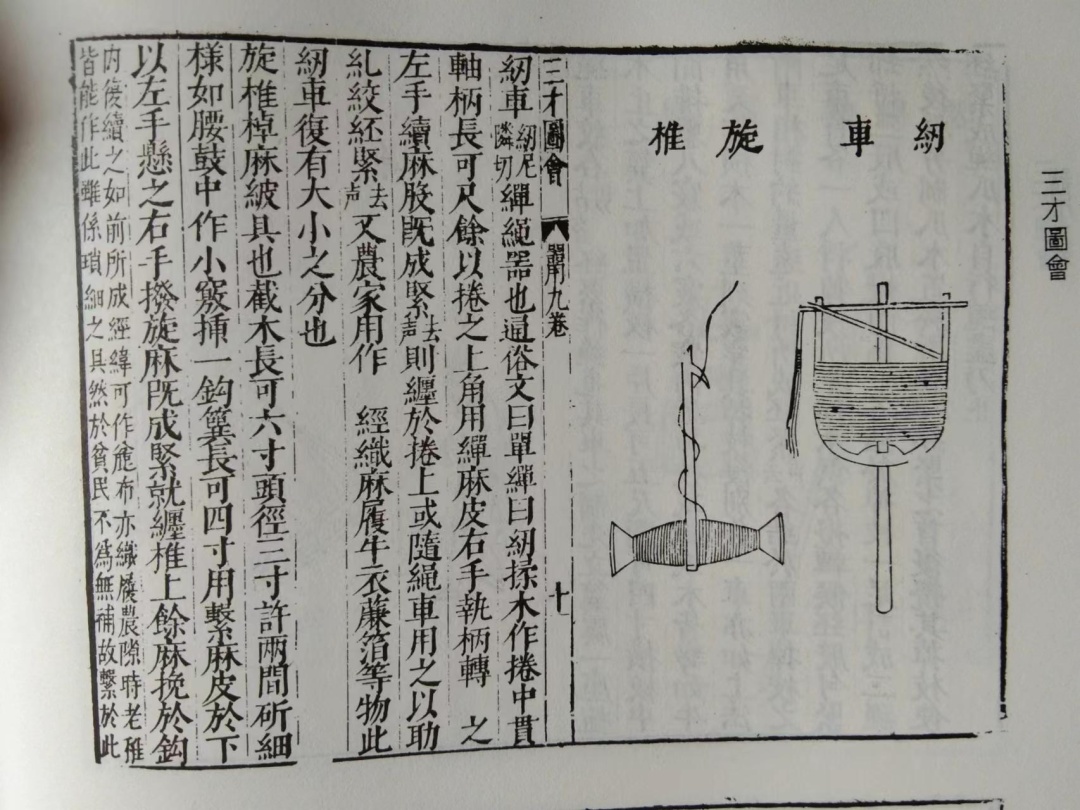 三才圖會
紉車 旋椎
三才圖會 器用九卷 十
紉車紉尼隣切繟繩器也通俗文曰單繟曰紉揉木作捲中貫
軸柄長可尺餘以捲之上角用繟麻皮右手執柄轉 之
左手續麻股既成緊去聲則纏於捲上或隨繩車用之以助
糺絞緊去聲又農家用作 經織麻履牛衣薕箔等物此
紉車復有大小之分也
旋椎棹麻紴具也截木長可六寸頭徑三寸許兩間斫細
樣如腰鼓中作小竅揷一鈎簨長可四寸用繫麻皮於下
以左手懸之右手撥旋麻既成緊就纏椎上餘麻挽於鈎
内復續之如前所成經緯可作麄布亦織履農隙時老稚
皆能作此雖係瑣細之具然於貧民不爲無補故繫於此